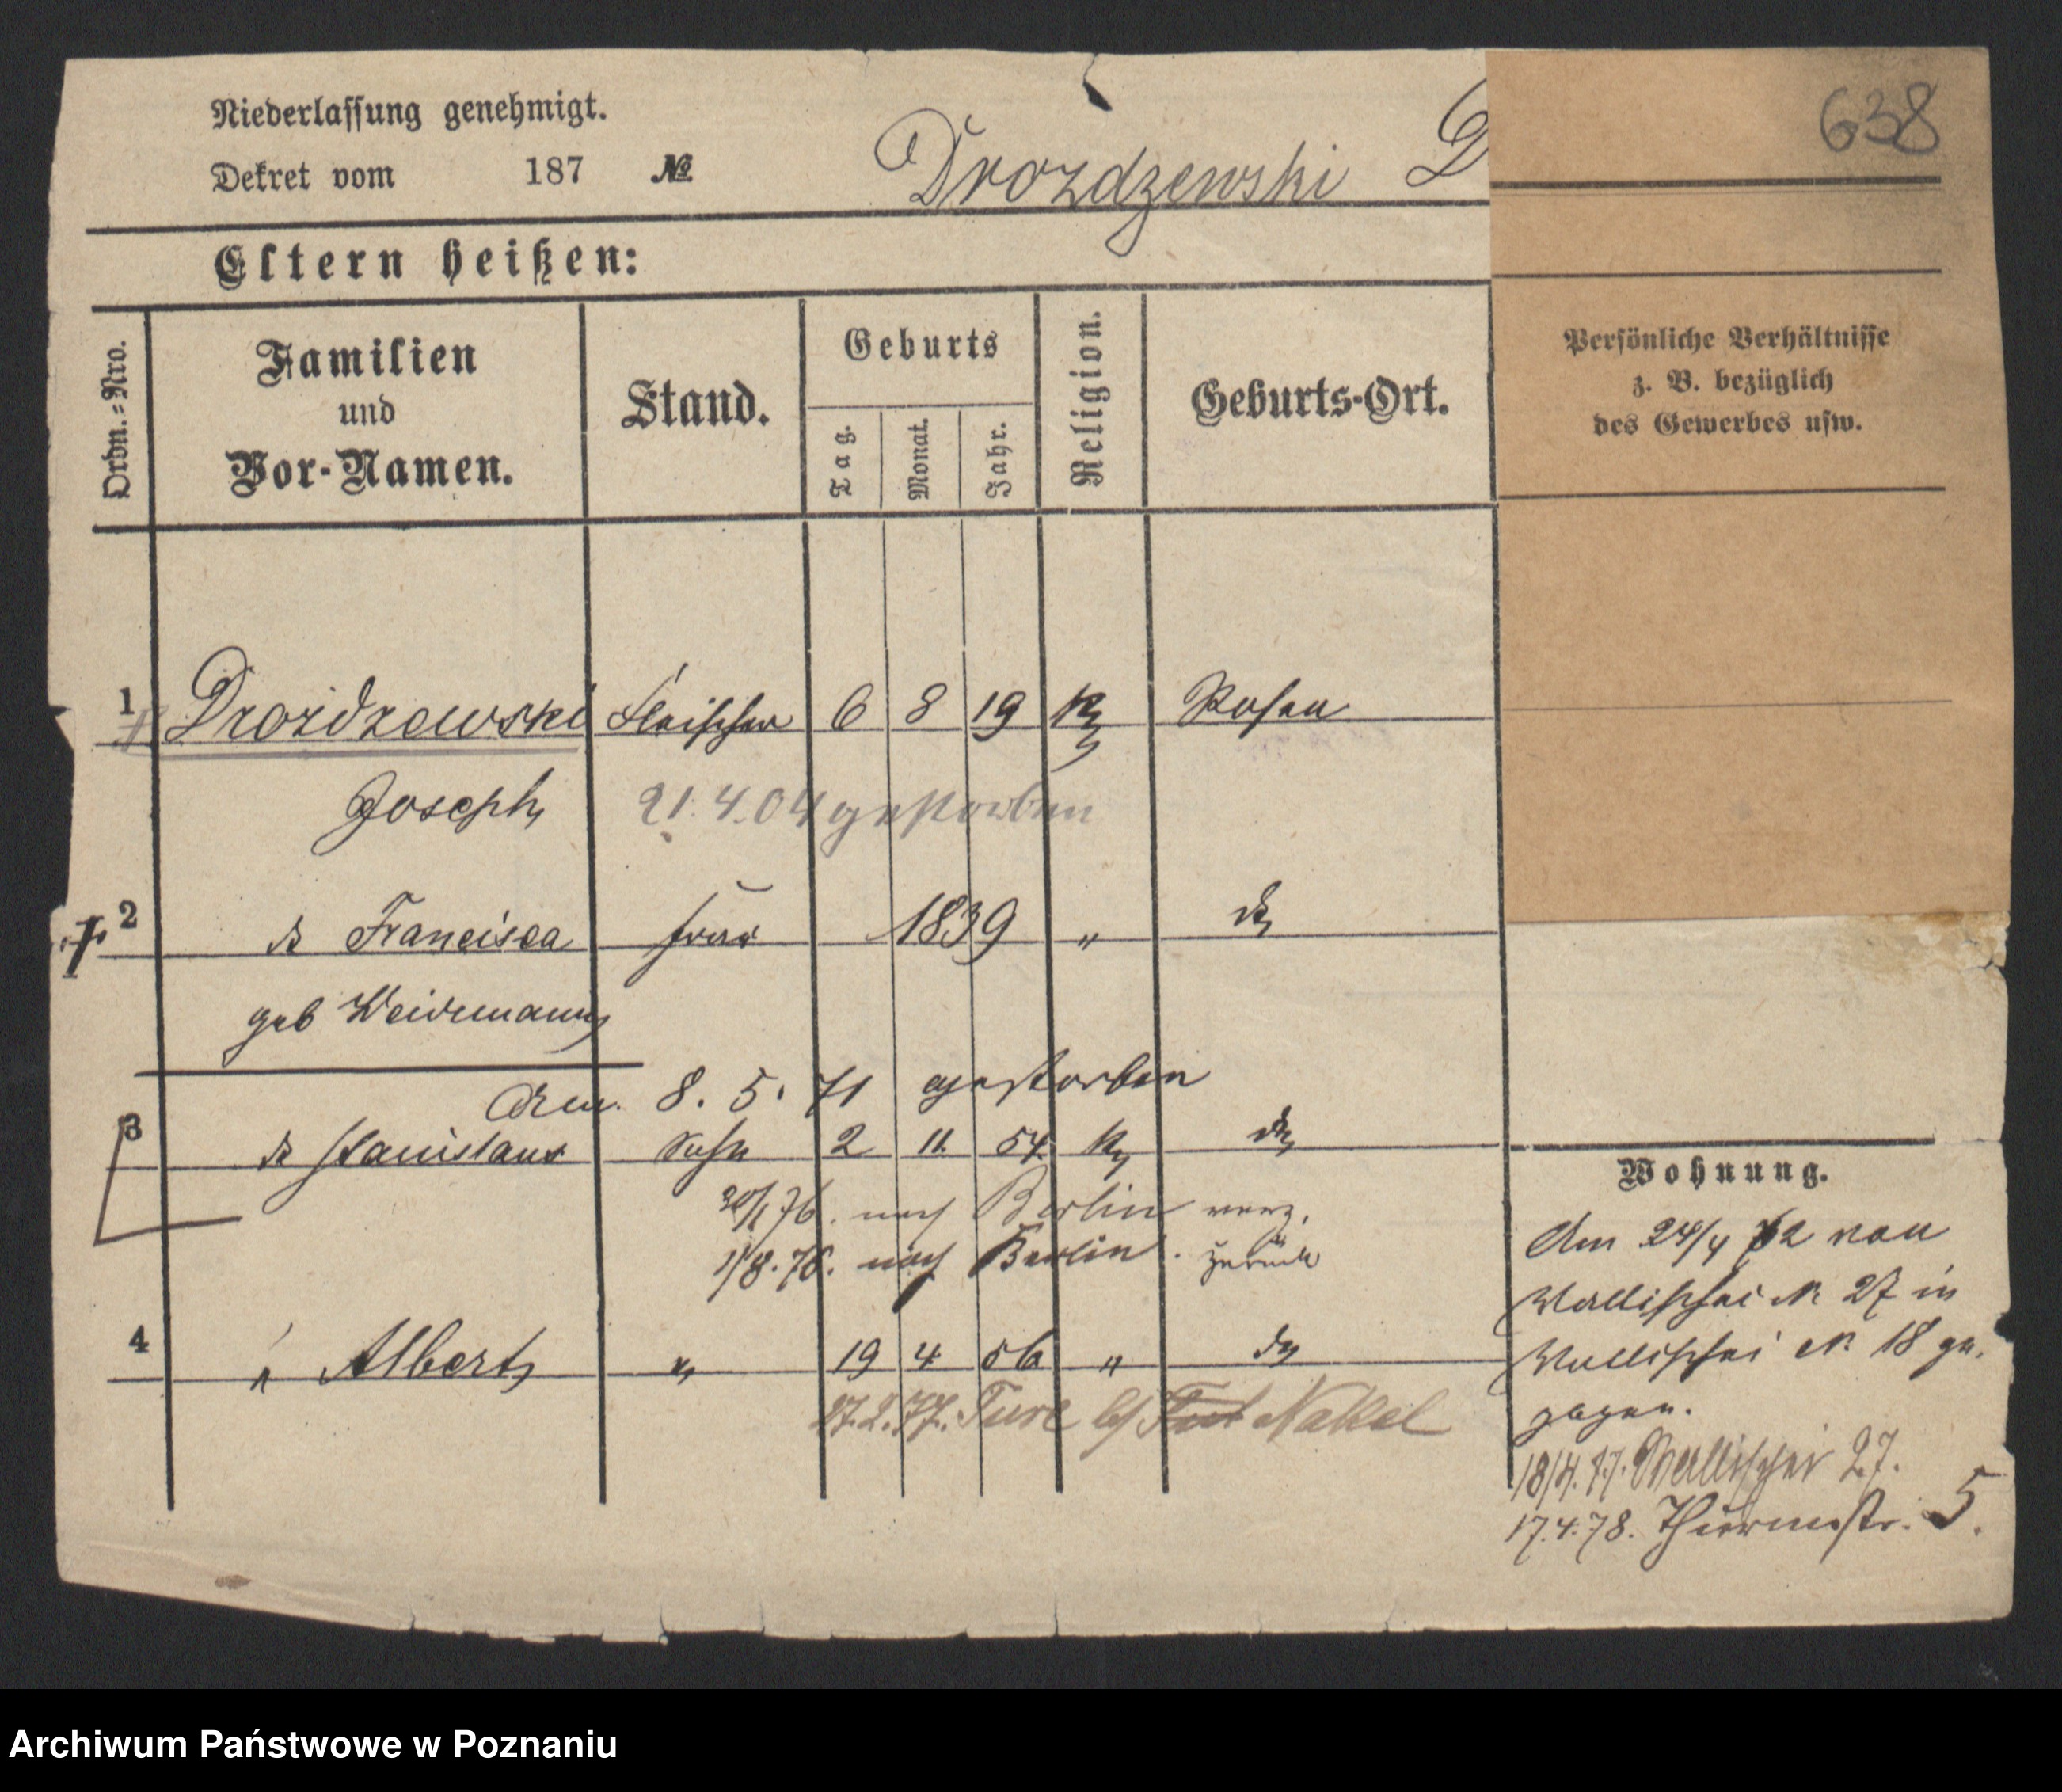 638
Niederlassung genehmigt.
Dekret vom 187 №
Drozdzewski D
Eltern heißen:
Ordn.=Nro.
Familien
und
Vor-Namen.
Stand.
Geburts
Tag.
Monat.
Jahr.
Religion.
Geburts-Ort.
Persönliche Verhältnisse
z. B. bezüglich
des Gewerbes usw.
1 Drozdzewski Fleischer 6 8 19 k Posen
Joseph 21.4.04 gestorben
2 Francisca Frau 1839 "
geb Weidemann
8. 5. 71 gestorben
3 Stanislaus Sohn 2 11. 54 k
30/1 76. nach Berlin verz.
1/8. 76. nach Berlin. zurück
4 " Albert " 19 4 56 " do
27.2.77. Ture b/ Nakel
Wohnung.
Am 24/4 72 von
Wallischei № 27 in
Wallischei № 18 ge-
zogen.
18/4. 77. Wallischei 27.
17.4.78. Thurmstr. 5.
Archiwum Państwowe w Poznaniu